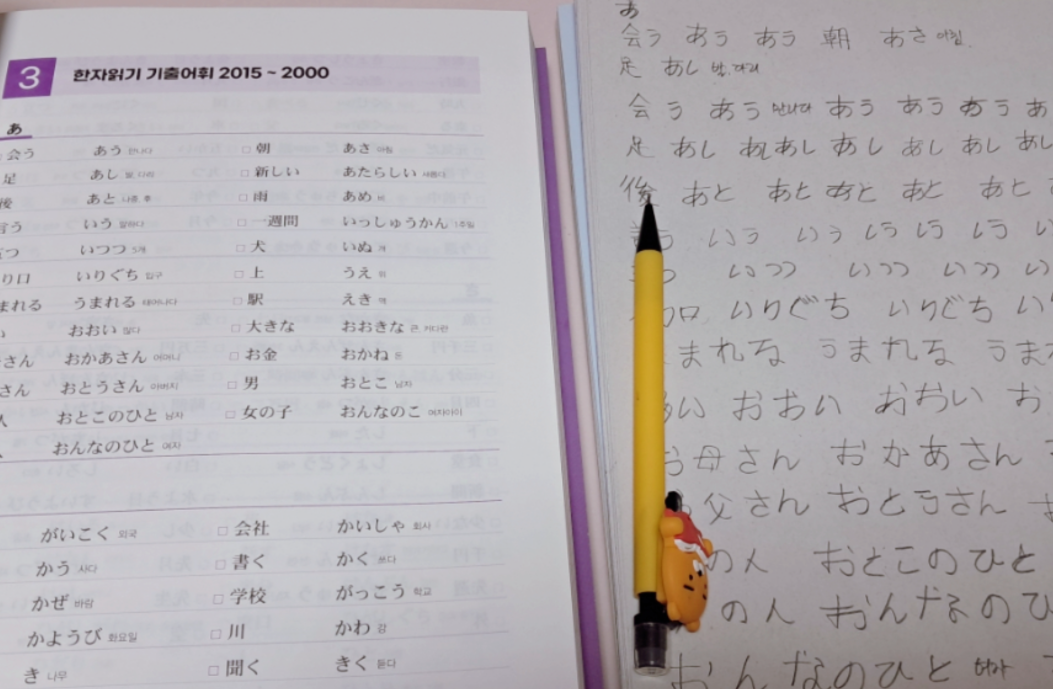 3 한자읽기 기출어휘 2015 ~ 2000
あ
会う あう 만나다 □ 朝 あさ 아침
足 あし 발, 다리 □ 新しい あたらしい 새롭다
後 あと 나중, 후 □ 雨 あめ 비
言う いう 말하다 □ 一週間 いっしゅうかん 1주일
つ いつつ 5개 □ 犬 いぬ 개
り口 いりぐち 입구 □ 上 うえ 위
まれる うまれる 태어나다 □ 駅 えき 역
い おおい 많다 □ 大きな おおきな 큰, 커다란
さん おかあさん 어머니 □ お金 おかね 돈
さん おとうさん 아버지 □ 男 おとこ 남자
人 おとこのひと 남자 □ 女の子 おんなのこ 여자아이
おんなのひと 여자
がいこく 외국 □ 会社 かいしゃ 회사
かう 사다 □ 書く かく 쓰다
かぜ 바람 □ 学校 がっこう 학교
かようび 화요일 □ 川 かわ 강
き 나무 □ 聞く きく 듣다
あ
会う あう あう 朝 あさ 아침
足 あし 발, 다리
会う あう 만나다 あう あう あう あ
足 あし あし あし あし あし あし あし
後 あと あと あと あと あと
う いう いう いう いう いう い
つ いつつ いつつ いつつ い
口 いりぐち いりぐち い
まれる うまれる うま
い おおい おおい お
お母さん おかあさん
父さん おとうさん
の人 おとこのひと
の人 おんなのひ
おんなのひと 여자